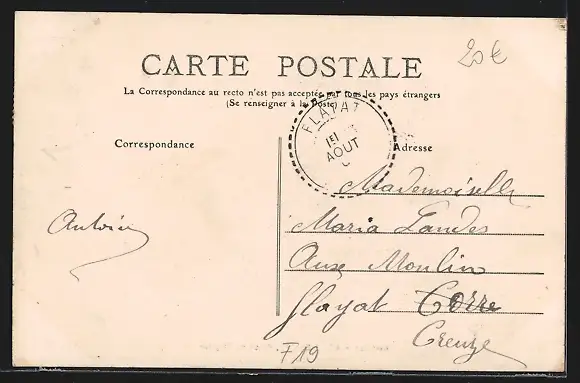 20€
CARTE POSTALE
La Correspondance au recto n'est pas acceptée par tous les pays étrangers
(Se renseigner à la Poste)
FLAYAT
AOUT
Correspondance
Adresse
Mademoiselle
Maria Landes
Antoine
Aux Moulin
flayat Corre
Creuze
F19